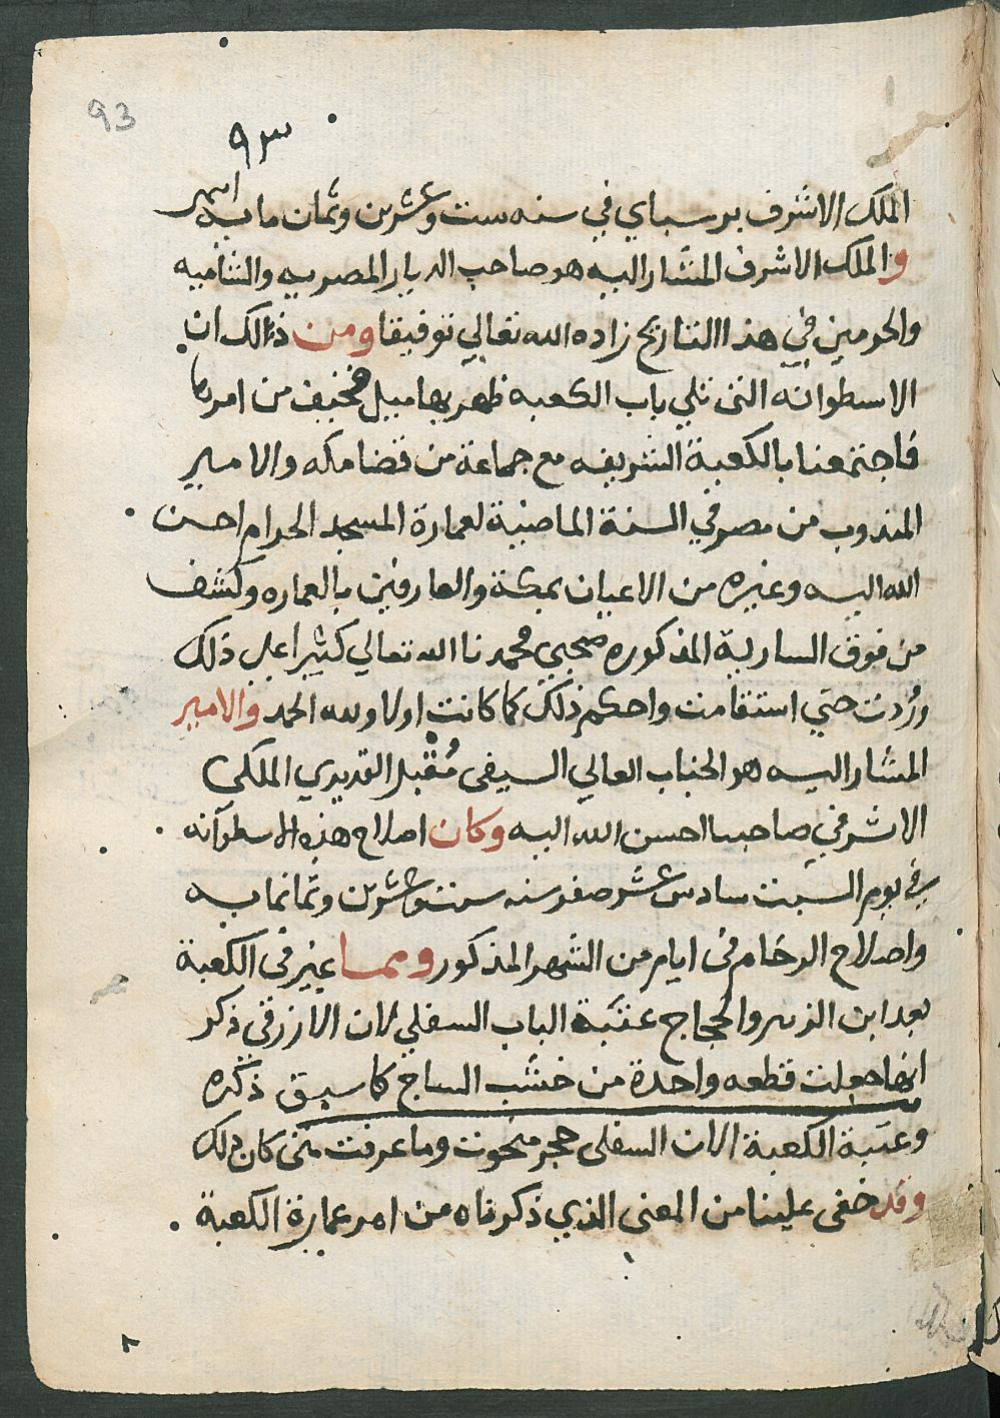 93
٩٣
الملك الاشرف برسباي في سنه ست وعشرين وثمان مايه
والملك الاشرف المشار اليه هو صاحب الديار المصريه والشاميه
والحرمين في هذا التاريخ زاده الله تعالي توفيقا ومن ذالك ان
الاسطوانه التي تلي باب الكعبه ظهر بها ميل فخيف من امرها
فاجتمعنا بالكعبة الشريفه مع جماعة من قضا مكه والامير
المندوب من مصر في السنة الماضية لعمارة المسجد الحرام احسن
الله اليه وغيره من الاعيان بمكة والعارفين بالعماره وكشف
من فوق السارية المذكوره صحيح فحمدنا الله تعالي كثيرا علي ذلك
وردت حتي استقامت واحكم ذلك كما كانت اولا ولله الحمد والامير
المشار اليه هو الجناب العالي السيفى مُقبل القديدي الملكي
الاشرفي صاحبنا احسن الله اليه وكان اصلاح هذه الاسطوآنه
في يوم السبت سادس عشر صفر سنه ست وعشرين وثمانمايه
واصلاح الرخام في ايام من الشهر المذكور ومما غير في الكعبة
بعد ابن الزبير والحجاج عتبة الباب السفلي لان الازرقى ذكر
انها جعلت قطعه واحدة من خشب الساج كما سبق ذكره
وعتبة الكعبة الان السفلى حجر منحوت وما عرفت متى كان ذلك
وقد خفى علينا من المعنى الذي ذكرناه من امر عمارة الكعبة